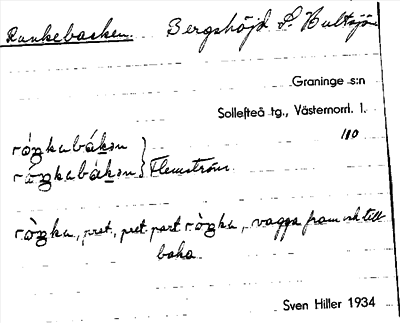 Rankebacken. Bergshöjd S. Hultsjön
Graninge s:n
Sollefteå tg., Västernorrl. l.
110
ráŋkabákən
ráŋkabákən } Flemström
ràŋka, pret., pret. part ràŋka, vagga fram och till-
baka
Sven Hiller 1934